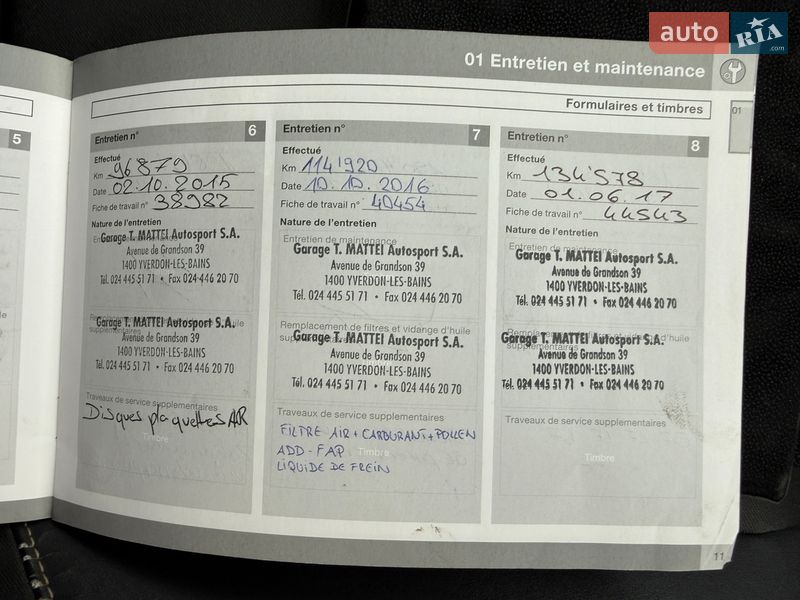 auto RIA.com
01 Entretien et maintenance
Formulaires et timbres
01
5
Entretien n° 6
Effectué
Km 96879
Date 02.10.2015
Fiche de travail n° 38982
Nature de l'entretien
Garage T. MATTEI Autosport S.A.
Avenue de Grandson 39
1400 YVERDON-LES-BAINS
Tél. 024 445 51 71 • Fax 024 446 20 70
Garage T. MATTEI Autosport S.A.
Avenue de Grandson 39
1400 YVERDON-LES-BAINS
Tél. 024 445 51 71 • Fax 024 446 20 70
Traveaux de service supplementaires
Disques plaquettes AR
Timbre
Entretien n° 7
Effectué
Km 114'920
Date 10.10.2016
Fiche de travail n° 40454
Nature de l'entretien
Entretien de maintenance
Garage T. MATTEI Autosport S.A.
Avenue de Grandson 39
1400 YVERDON-LES-BAINS
Tél. 024 445 51 71 • Fax 024 446 20 70
Remplacement de filtres et vidange d'huile
Garage T. MATTEI Autosport S.A.
Avenue de Grandson 39
1400 YVERDON-LES-BAINS
Tél. 024 445 51 71 • Fax 024 446 20 70
Traveaux de service supplementaires
FILTRE AIR + CARBURANT + POLLEN
ADD - FAP
Timbre
LIQUIDE DE FREIN
Entretien n° 8
Effectué
Km 134'578
Date 01.06.17
Fiche de travail n° 44543
Nature de l'entretien
Entretien de maintenance
Garage T. MATTEI Autosport S.A.
Avenue de Grandson 39
1400 YVERDON-LES-BAINS
Tél. 024 445 51 71 • Fax 024 446 20 70
Remplacement de filtres et vidange d'huile
Garage T. MATTEI Autosport S.A.
Avenue de Grandson 39
1400 YVERDON-LES-BAINS
Tél. 024 445 51 71 • Fax 024 446 20 70
Traveaux de service supplementaires
Timbre
11